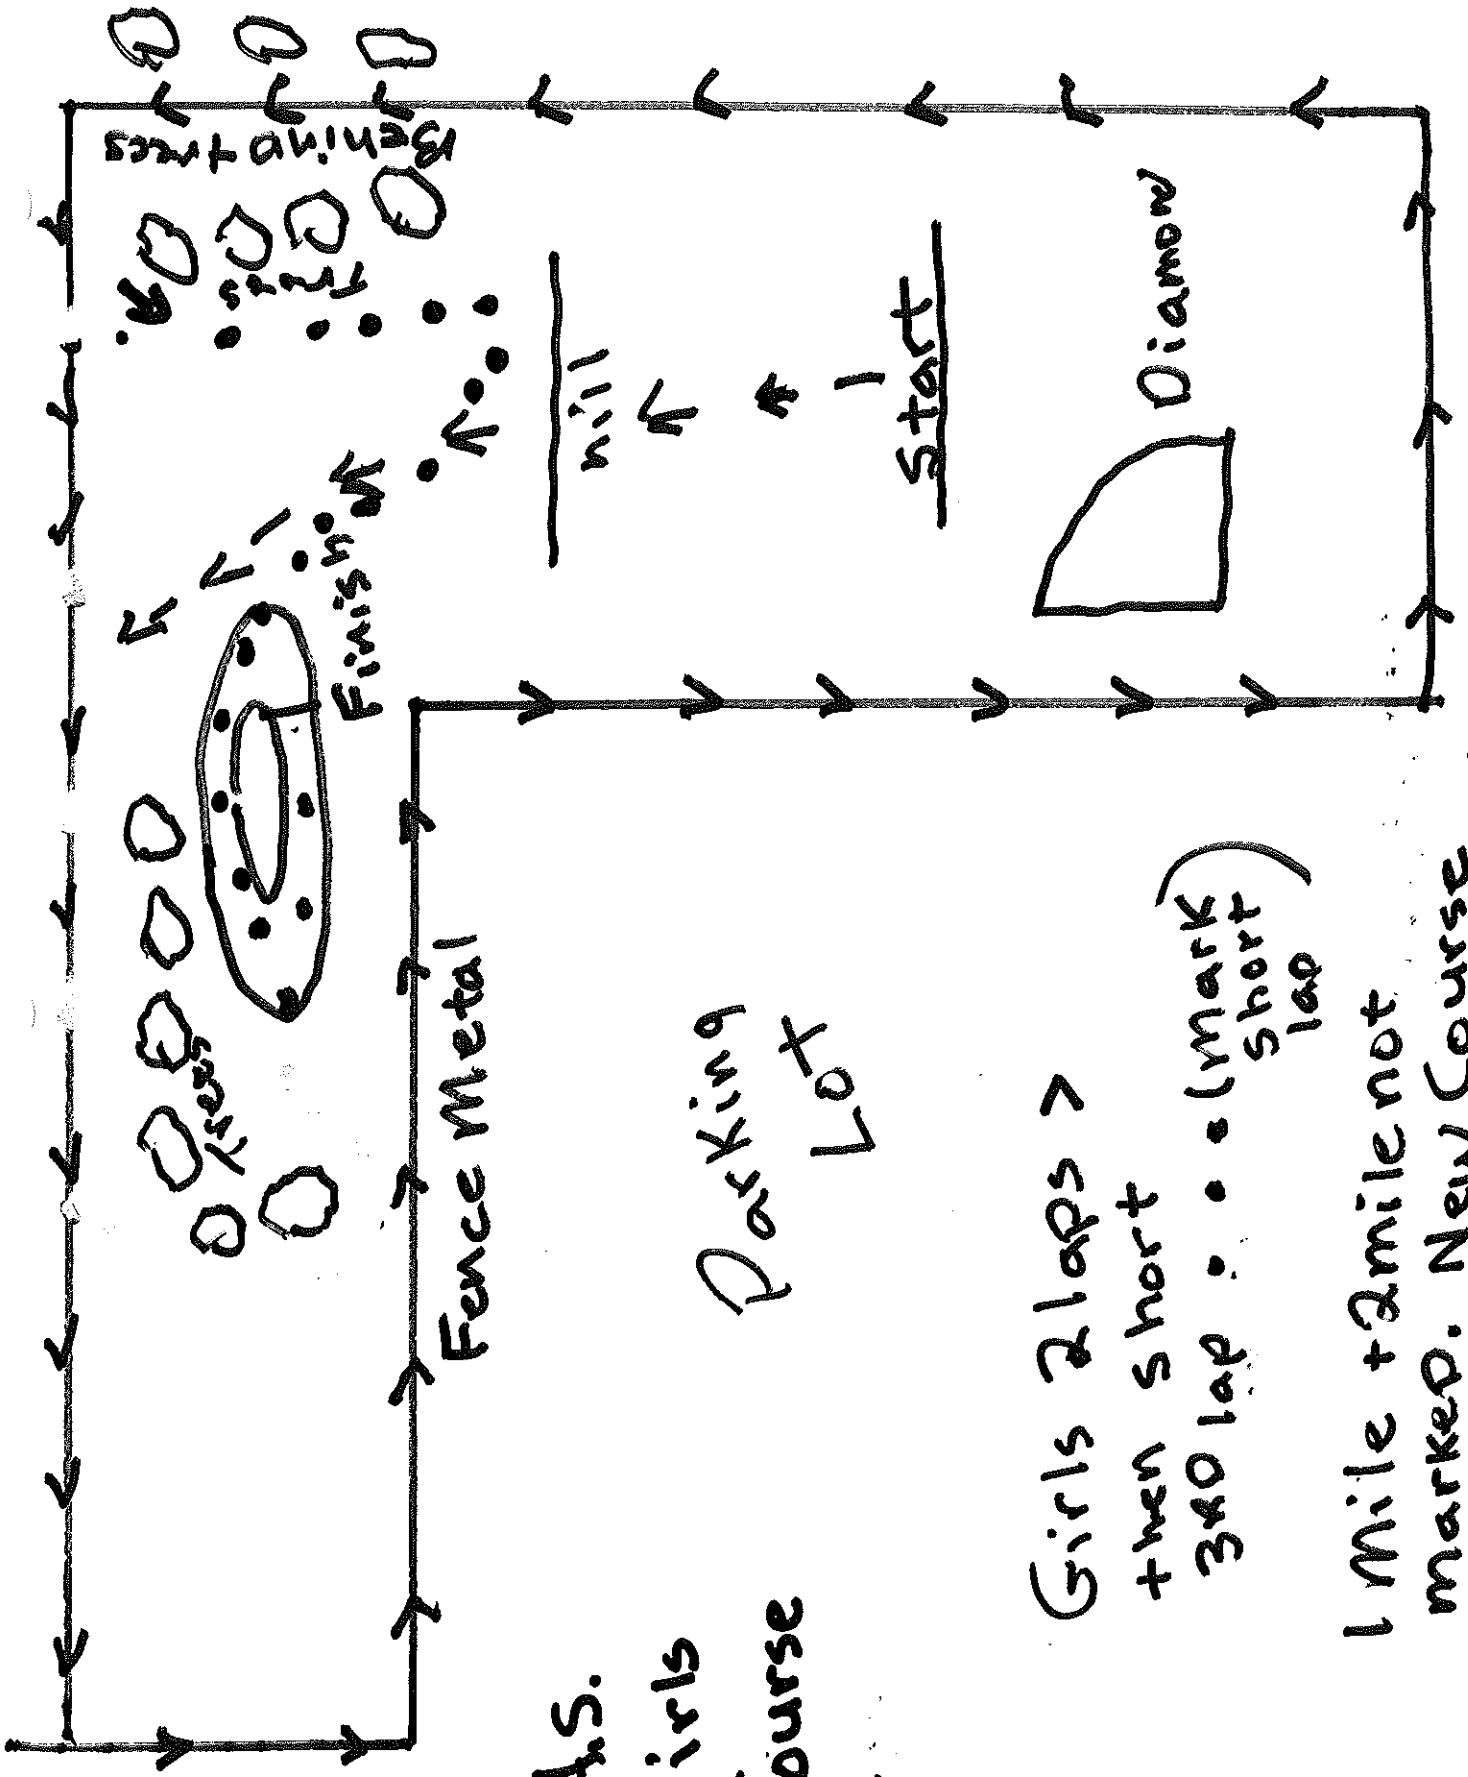 Behind trees
Trees
hill
Start
Diamond
Finish
Trees
Fence Metal
Parking
Lot
Girls 2 laps >
then short
3RD lap . • • • (mark
short
lap)
1 Mile + 2mile not
marked. New Course